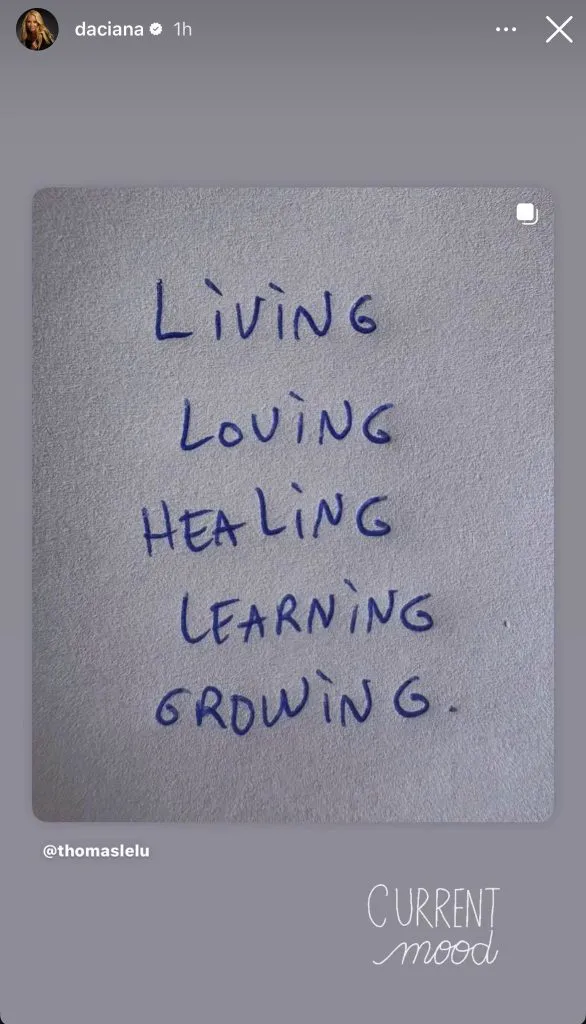 daciana 1h
LiViNG
LOViNG
HEALiNG
LEARNiNG
GROWiNG.
@thomaslelu
CURRENT
mood